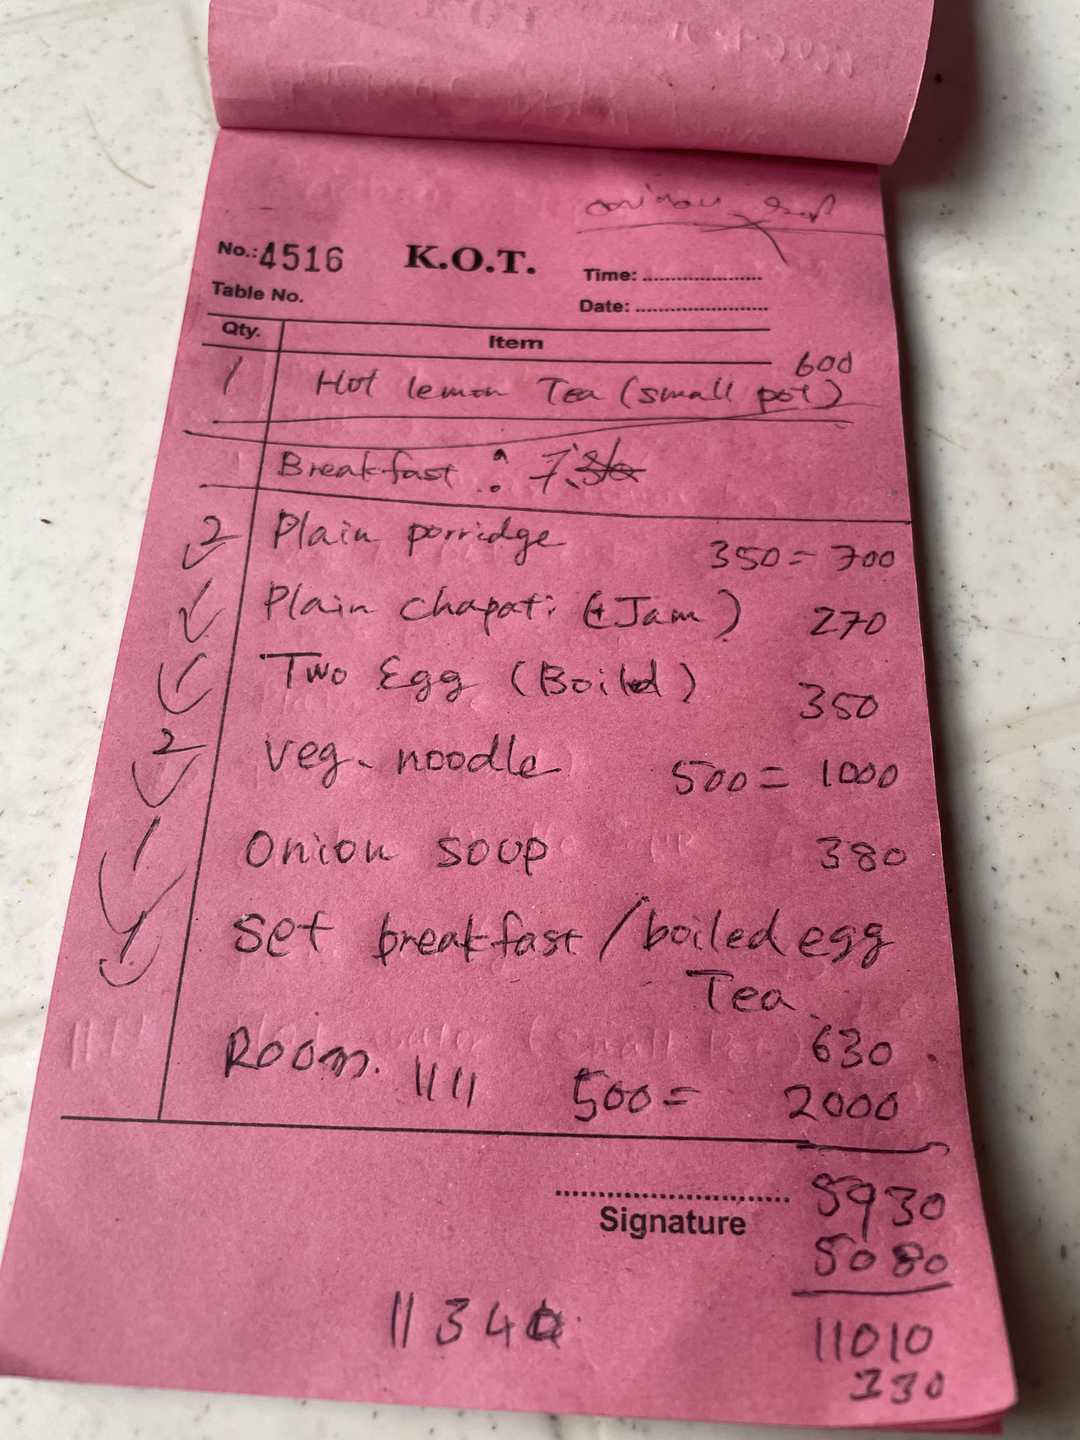 No.: 4516 K.O.T. Time: ....................
Table No. Date: ......................
Qty. Item
600
1 Hot lemon Tea (small pot)
Breakfast : 7:30
2 Plain porridge 350 = 700
Plain chapati (+Jam) 270
Two Egg (Boiled) 350
2 veg. noodle 500 = 1000
1 Onion soup 380
1 set breakfast/boiled egg
Tea.
630
Room. 1111 500 = 2000
5930
Signature
5080
11340
11010
330